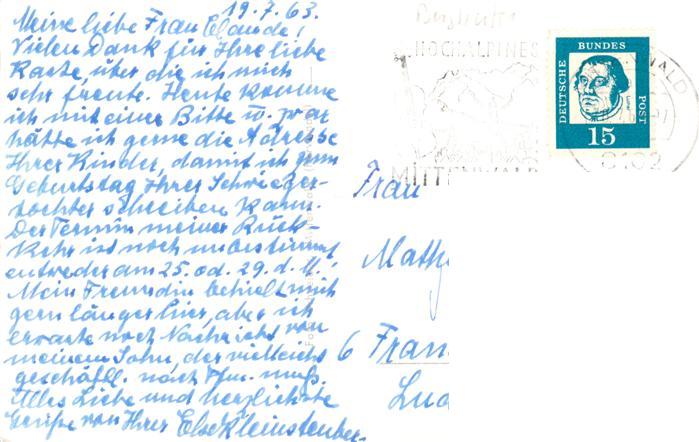 19.7.63.
Meine liebe Frau Elaude!
Vielen Dank für Ihre liebe
Karte, über die ich mich
sehr freute. Heute komme
ich mit einer Bitte u. zwar
hätte ich gerne die Adresse
Ihrer Kinder, damit ich zum
Geburtstag Ihrer Schwieger-
tochter schreiben kann.
Der Termin meiner Rück-
kehr ist noch unbestimmt
entweder am 25. od. 29. d. M.!
Mein Freundin behielt mich
gern länger hier, aber ich
erwarte noch Nachricht von
meinem Sohn, der vielleicht
geschäftl. nach Ffm. muß.
Alles Liebe und herzlichste
Grüße von Ihrer Else Kleinstenber.
HOCHALPINES
MITTENWALD
DEUTSCHE BUNDES POST
15
WALD
8102
Frau
Math
6 Fran
Lud